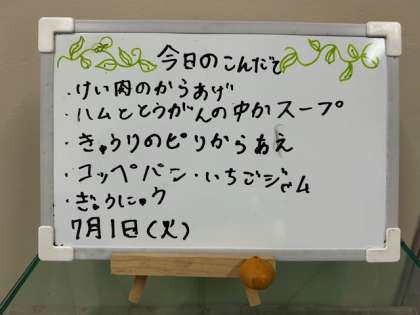 今日のこんだて
・けい肉のからあげ
・ハムととうがんの中かスープ
・きゅうりのピリからあえ
・コッペパン・いちごジャム
・ぎゅうにゅう
7月1日(火)